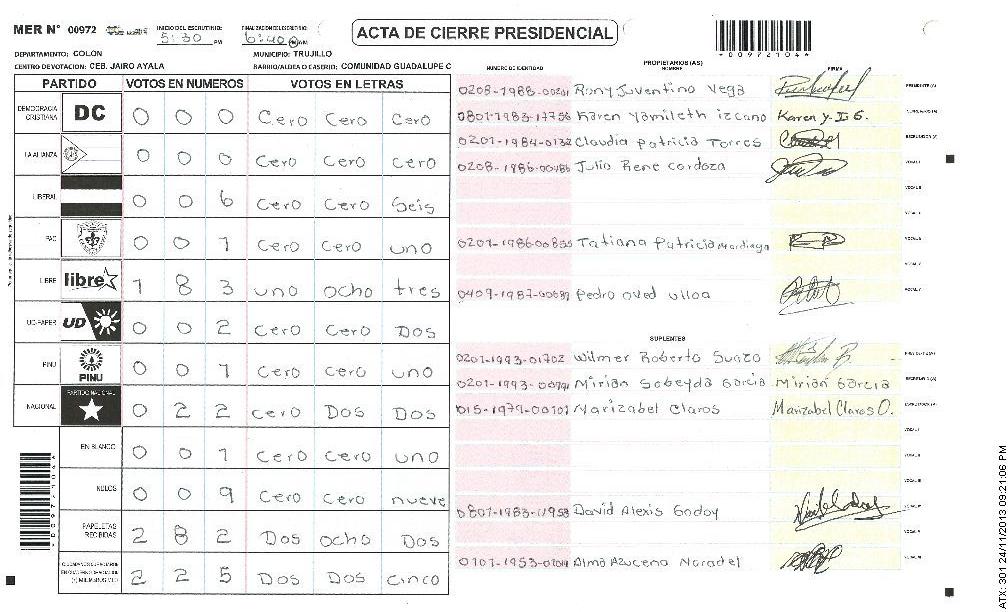 MER N° 00972 INICIO DEL ESCRUTINIO: 5:30 PM FINALIZACION DEL ESCRUTINIO: 6:40 PM AM
ACTA DE CIERRE PRESIDENCIAL
*00972104*
DEPARTAMENTO: COLON MUNICIPIO: TRUJILLO
CENTRO DE VOTACION: CEB. JAIRO AYALA BARRIO/ALDEA O CASERIO: COMUNIDAD GUADALUPE C
PARTIDO VOTOS EN NUMEROS VOTOS EN LETRAS
DEMOCRACIA CRISTIANA DC 0 0 0 Cero Cero Cero
LA ALIANZA 0 0 0 Cero Cero Cero
LIBERAL 0 0 6 Cero Cero Seis
PAC 0 0 1 Cero Cero uno
LIBRE libre 1 8 3 uno ocho tres
UD-FAPER UD 0 0 2 Cero Cero Dos
PINU PINU 0 0 1 Cero Cero uno
NACIONAL PARTIDO NACIONAL 0 2 2 cero Dos Dos
EN BLANCO 0 0 1 Cero Cero uno
NULOS 0 0 9 Cero Cero nueve
PAPELETAS RECIBIDAS 2 8 2 Dos ocho Dos
2 2 5 Dos Dos cinco
NUMERO DE IDENTIDAD PROPIETARIOS (AS) NOMBRE FIRMA
0208-1988-00201 Rony Juventino Vega PRESIDENTE (A)
0801-1983-17756 Karen Yamileth izcano Karen Y. I G.
0201-1984-0132 Claudia Patricia Torres
0208-1986-00486 Julio Rene Cardoza VOCAL I
VOCAL II
0201-1986-00855 Tatiana Patricia
0409-1987-00689 Pedro oved ulloa
SUPLENTES
0201-1993-01702 Wilmer Roberto Suazo
0201-1993-00791 Mirian Sobeyda Garcia Mirian Garcia
015-1979-00101 Marizabel Claros Marizabel Claros O.
0801-1983-11958 David Alexis Godoy
0101-1953-0204 Alma Azucena
ATX: 301 24/11/2013 09:21:06 PM